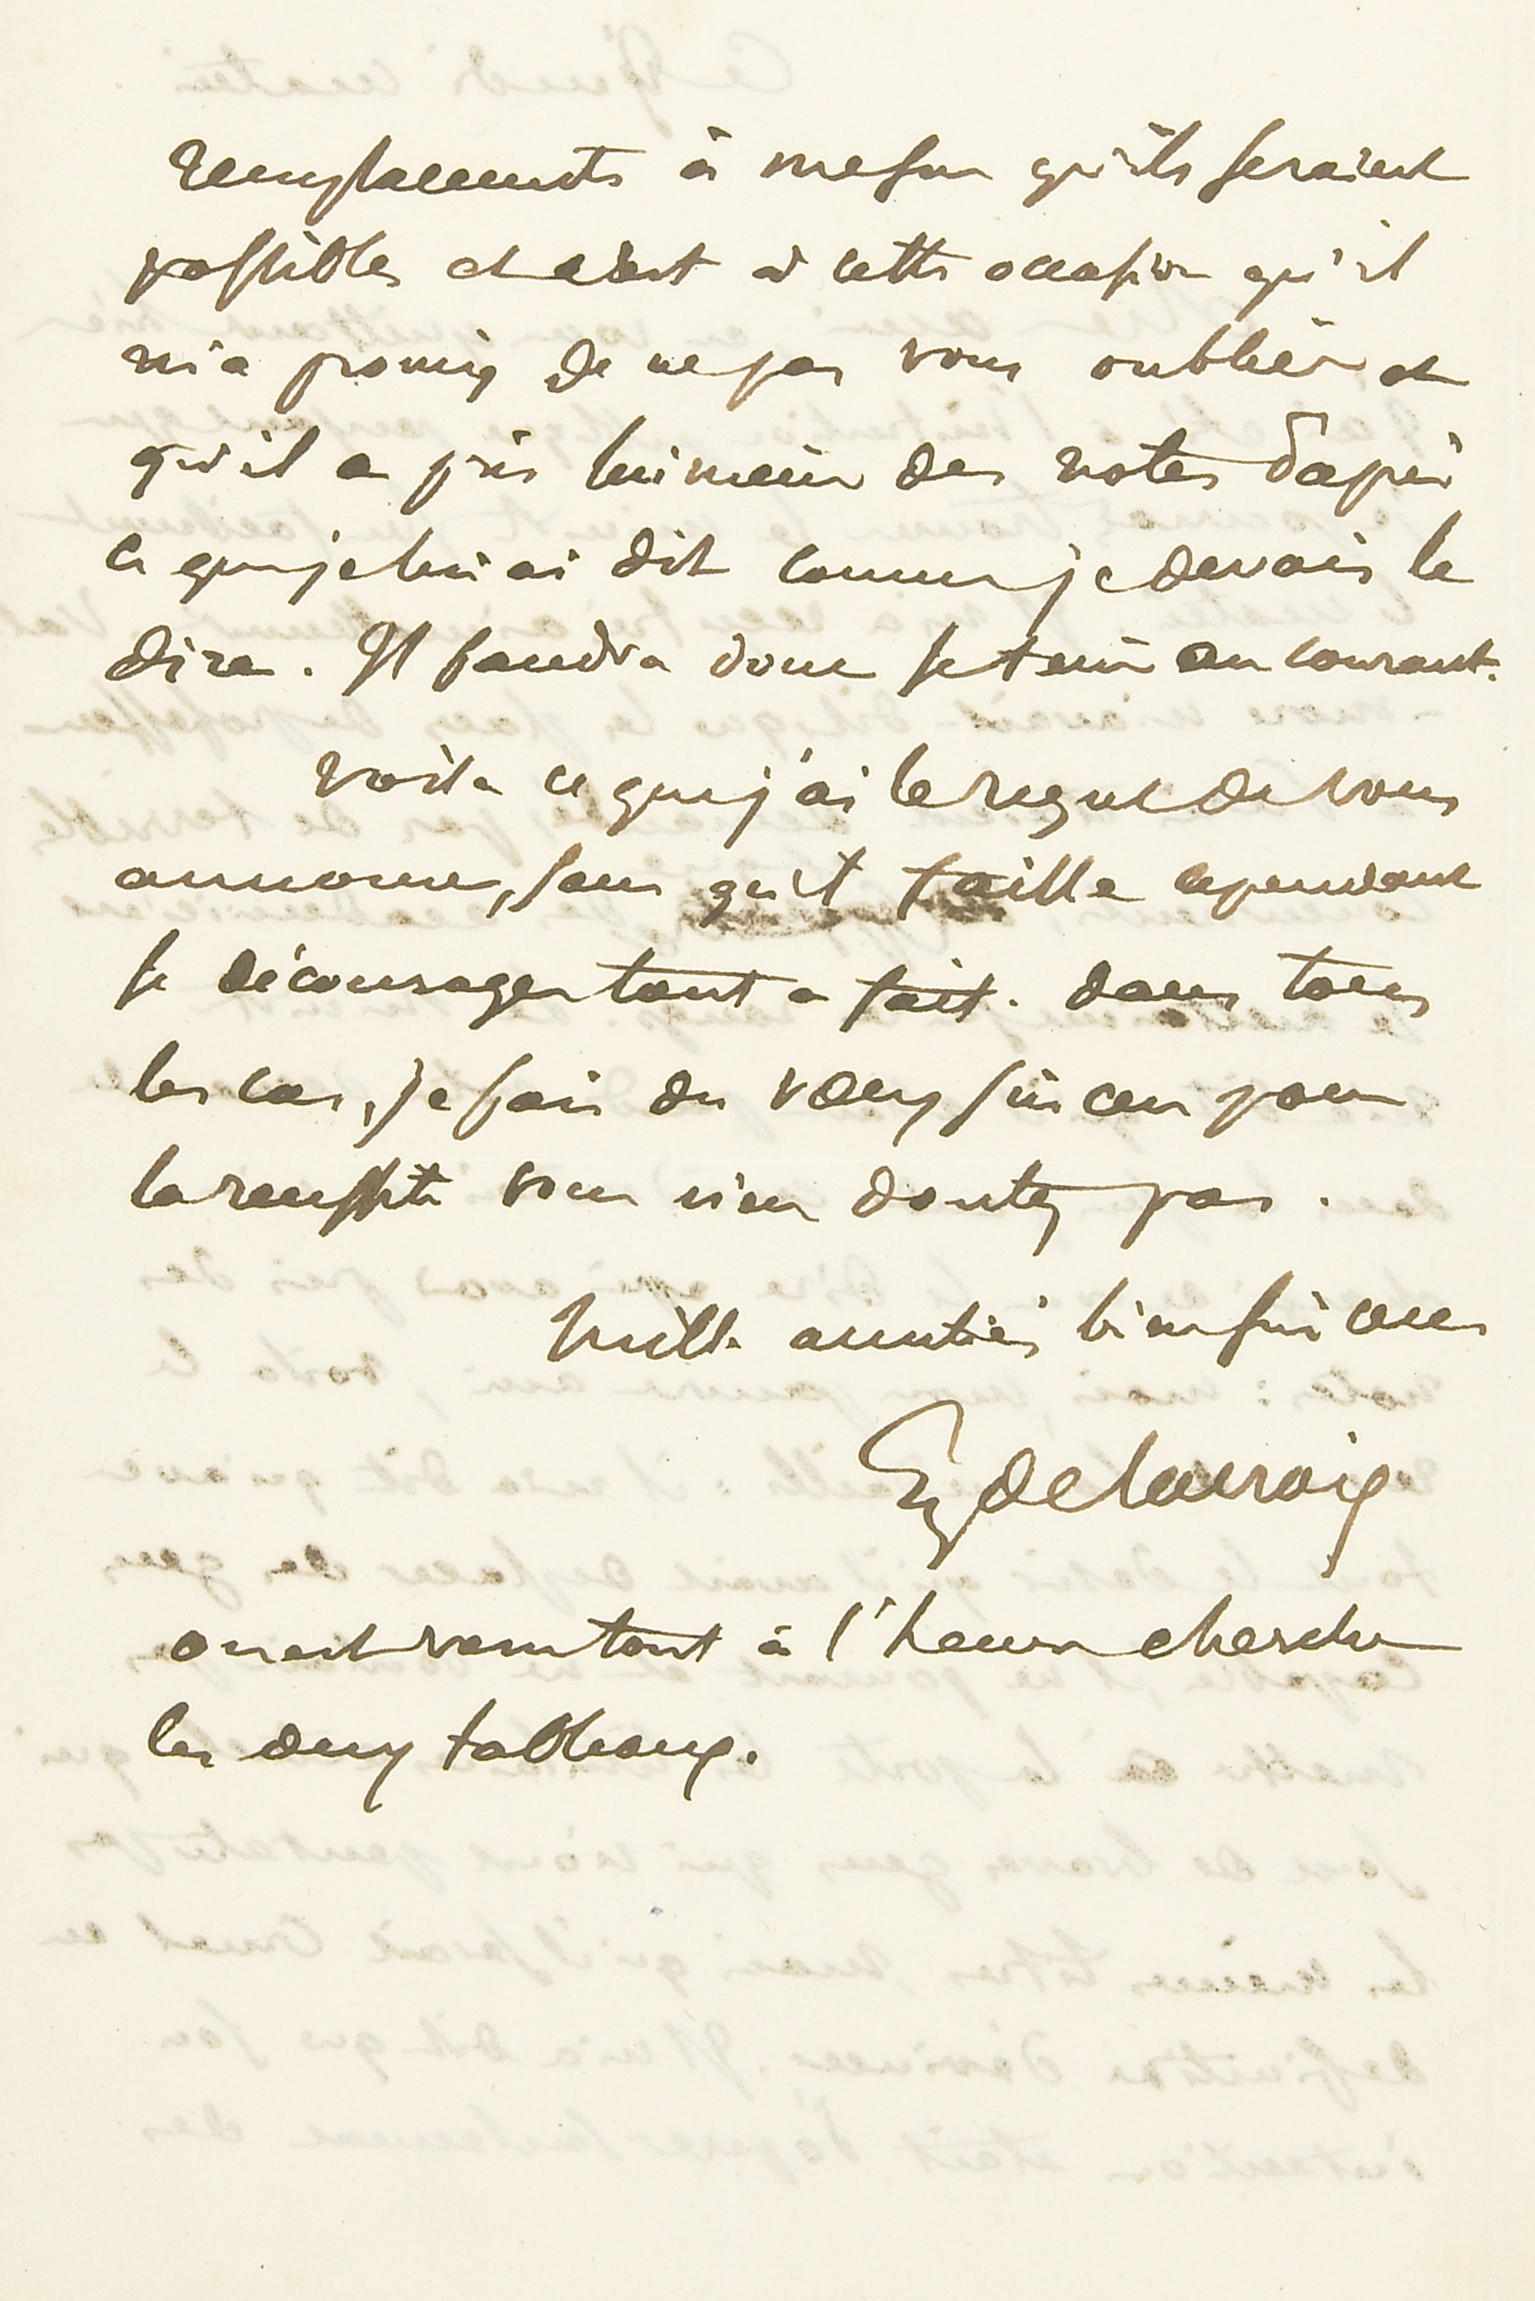 remplacements à mesure qu'ils seraient
possibles et c'est à cette occasion qu'il
m'a promis de ne pas vous oublier et
qu'il a pris lui même des notes d'après
ce que je lui ai dit comme je devais le
dire. Il faudra donc se tenir au courant.
Voila ce que j'ai le regret de vous
annoncer, sans qu'il faille cependant
se décourager tout a fait. dans tous
les cas, je fais des vœux sincères pour
la reussite vous n'en doutez pas.
Mille amitiés bien sincères
Eug Delacroix
on est venu tout à l'heure chercher
les deux tableaux.